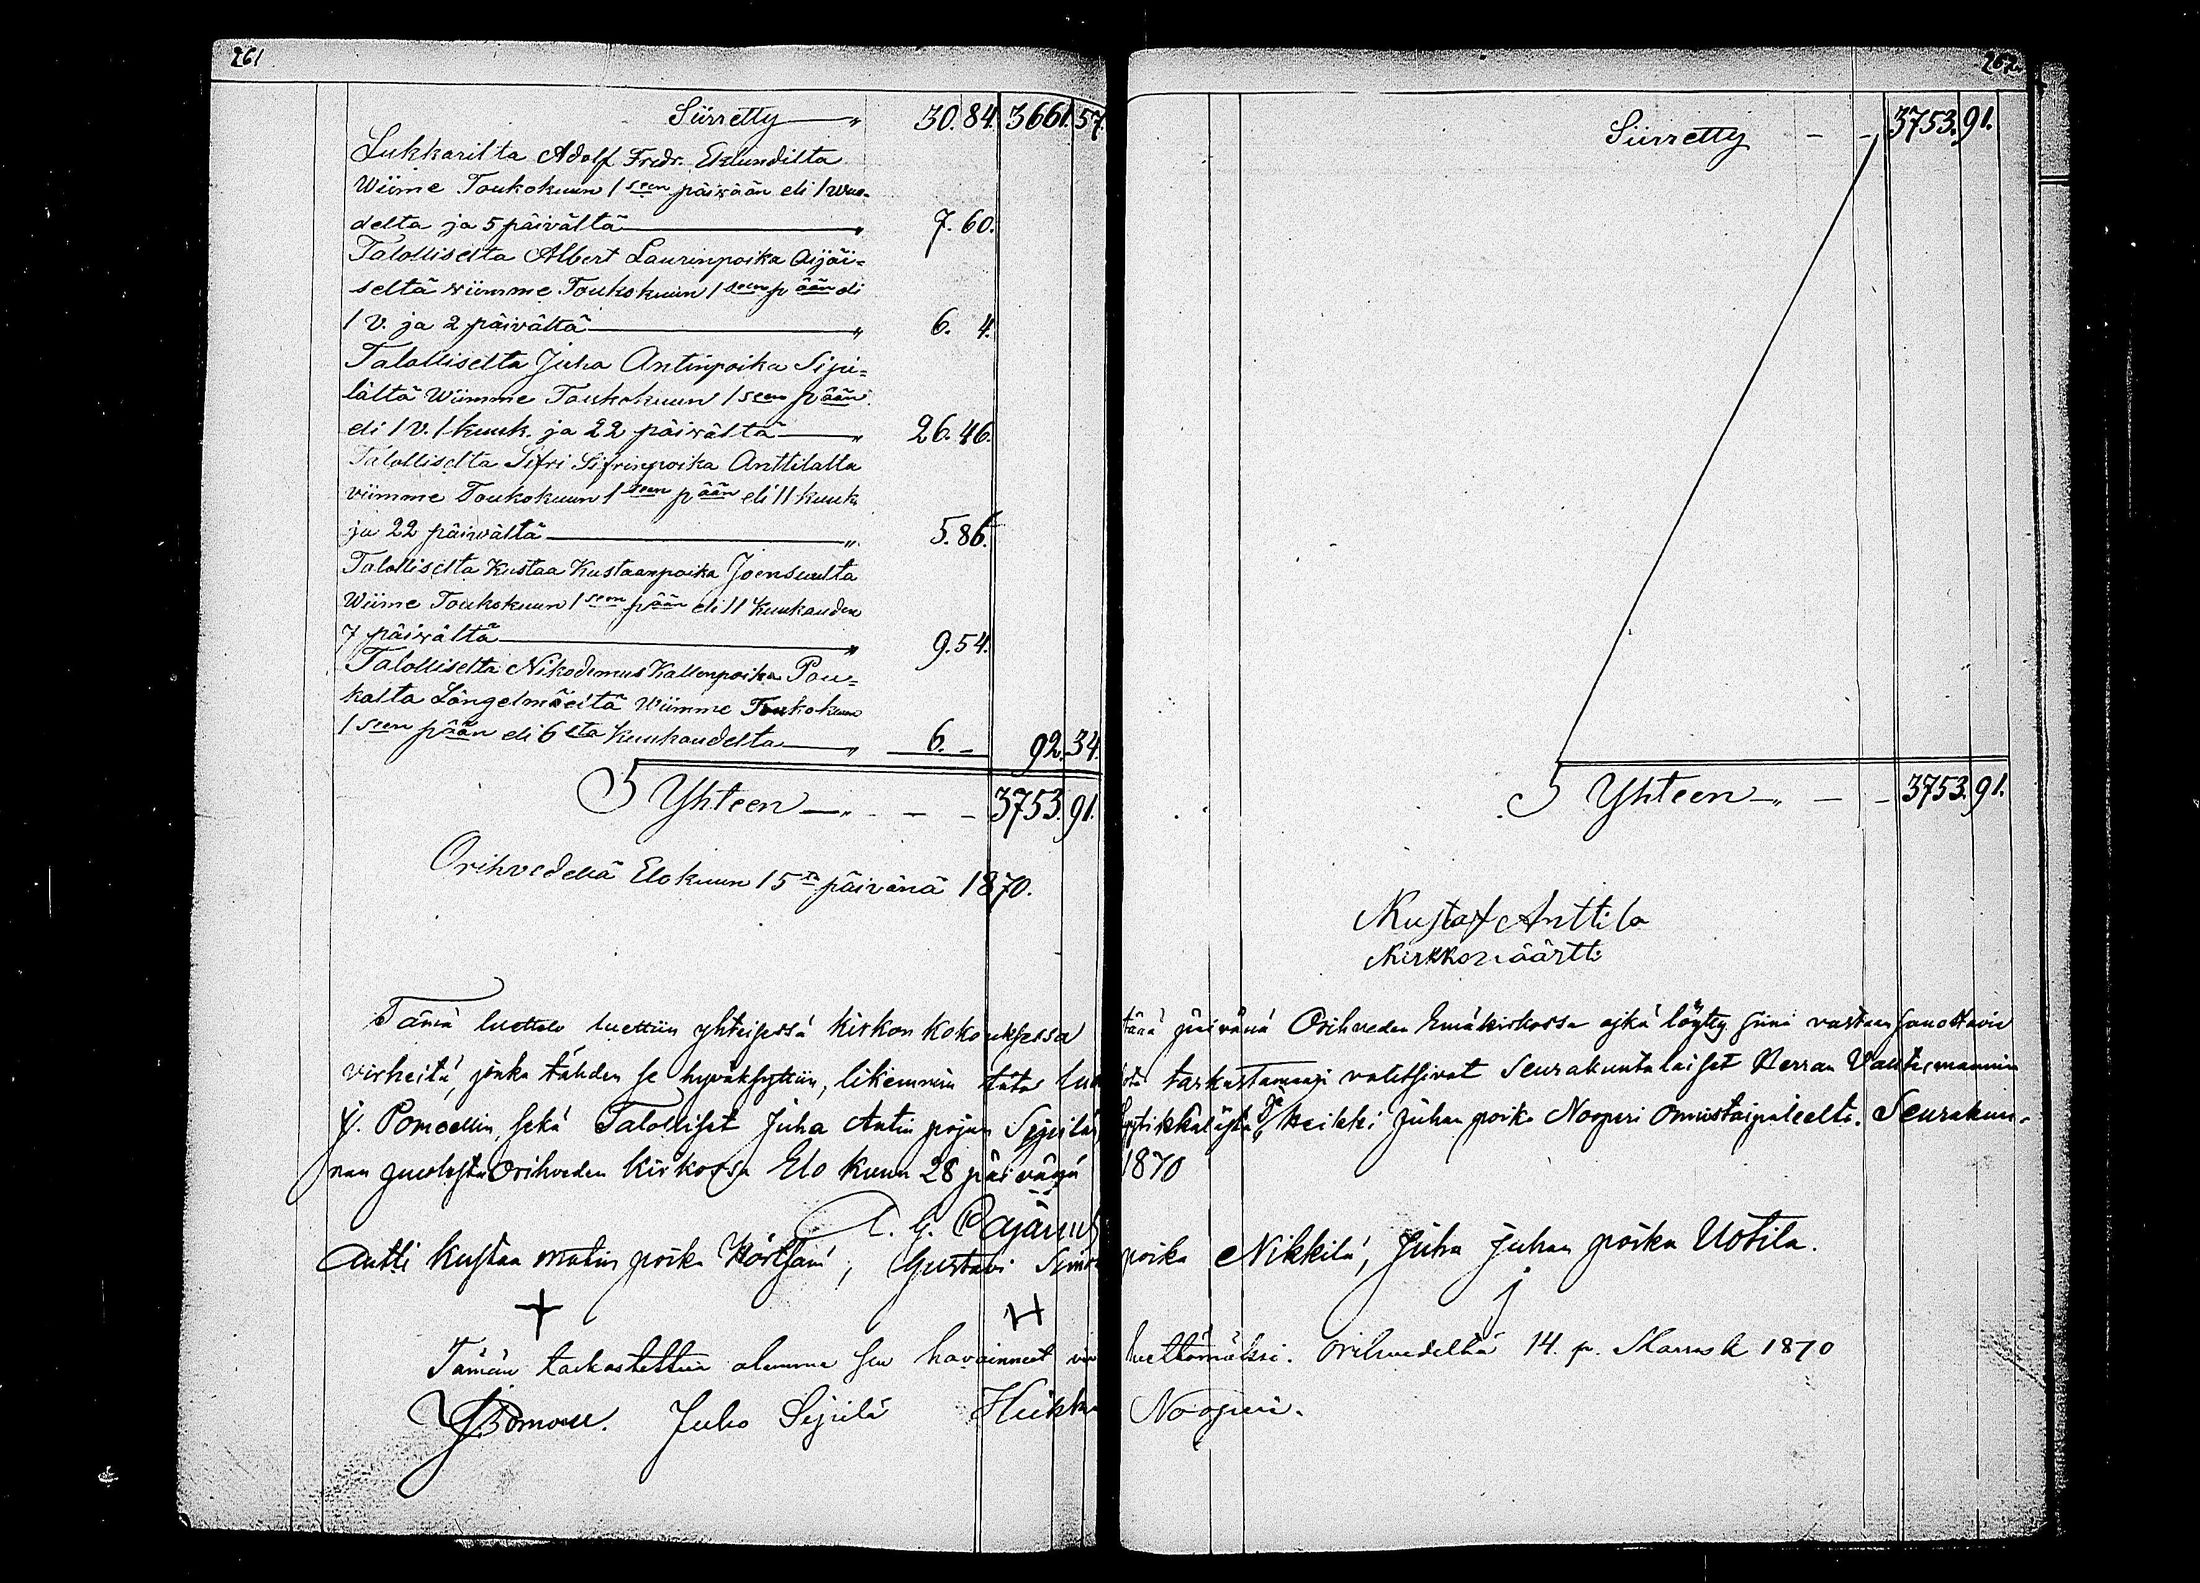 261
Siirretty — " 30. 84. 3661. 57.
Lukkarilta Adolf Fredr. Eklundilta
Wiime Toukokuun 1 seen päivään eli 1 wuo-
delta ja 5 päivältä — " 7. 60.
Talolliselta Albert Laurinpoika Äijäi=
seltä wiimme Toukokuun 1 seen pään eli
1 V. ja 2 päivältä — " 6. 4.
Talolliselta Juha Antinpoika Sipi=
lältä Wiimme Toukokuun 1 seen pään
eli 1 V. 1 kuuk. ja 22 päiwältä — " 26. 46.
Talolliselta Sifri Sifrinpoika Anttilalta
viimme Toukokuun 1 seen pään eli 11 kuuk
ja 22 päiwältä — " 5. 86.
Talolliselta Kustaa Kustaanpoika Joensuulta
Wiime Toukokuun 1 seen pään eli 11 Kuukauden
7 päiwältä — " 9. 54.
Talolliselta Nikodemus Kallenpoika Pou=
kalta Längelmäeltä Wiimme Toukokuun
1 seen pään eli 6 lta Kuukaudelta — " 6. - 92. 34.
Yhteen — " - - - 3753. 91.
Orihvedellä Elokuun 15 ta päivänä 1870.
262
Siirretty - - 3753. 91.
Yhteen — " - - 3753. 91.
Kustaf Anttila
Kirkkoväärtti
Tämä luettelo luettiin yhteisessä kirkon kokouksessa tänä päivänä Orihveden Emäkirkossa eikä löytty siinä vastaan sanottavia
virheitä, jonka tähden se hyväksyttiin, likemmin tätä tarkastamaan valitsivat Seurakuntalaiset Herran
J. Pomoellin, sekä Talolliset Juha Antin pojan Sipilän ja Heikki Juhan poika Nooperi Onnistaipaleelta. Seurakun-
nan puolesta Orihveden Kirkossa Elo kuun 28 päivänä 1870
Antti Kustaa Matin poika Hörtsänä, Gustavi Simon poika Nikkilä, Juha Juhan poika Uotila.
Tämän tarkastettua olemme sen havainneet virheettömäksi. Orihvedellä 14. p. Marrask 1870
Juho Sipilä Heikki Nooperi.